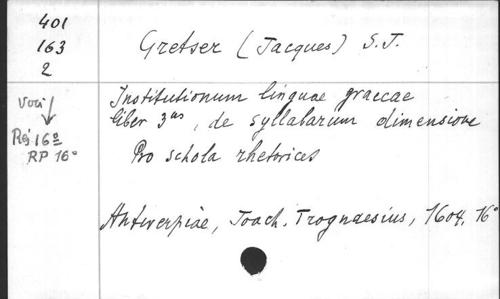 401
163
2
Gretser (Jacques) S.J.
Institutionum linguae graecae
liber 3us, de syllabarum dimensione
Pro schola rhetorices
Voir
Rés 16º
RP 16º
Antverpiae, Joach. Trognaesius, 1604. 16º